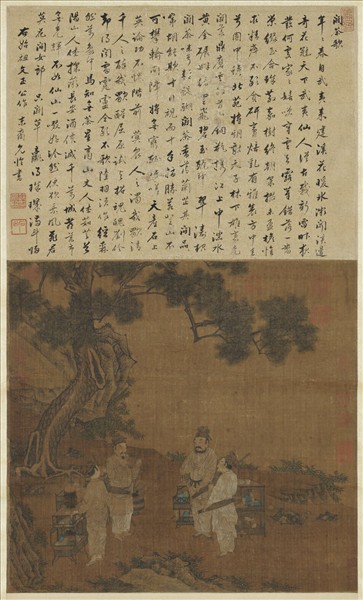 鬪茶歌
年年春自東南來建溪先暖冰微開溪邊
奇茗冠天下武夷仙人從古栽新雷昨夜
發何處家家嬉笑穿雲去露芽錯落一番
榮綴玉含珠散嘉樹終朝采掇未盈襜惟
求精粹不敢貪研膏焙乳有雅製方中圭
兮圓中蟾北苑將期獻天子林下雄豪先
鬪美鼎磨雲外首山銅瓶攜江上中泠水
黃金碾畔綠塵飛碧玉甌中翠濤起
鬪茶味兮輕醍醐鬪茶香兮薄蘭芷其間品
第胡能欺十目視而十手指勝若登仙不
可攀輸同降將無窮恥吁嗟天產石上
英論功不愧階前蓂眾人之濁我可清
千日之醉我可醒屈原試與招魂魄劉伶
却得聞雷霆盧仝敢不歌陸羽須作經森
然萬象中焉知無茶星商山丈人休茹芝首
陽先生休采薇長安酒價減千萬成都藥市
無光輝不如仙山一啜好泠然便欲乘風飛君
莫羨花間女郎只鬪草贏得珠璣滿斗歸
右始祖文正公作 允臨書